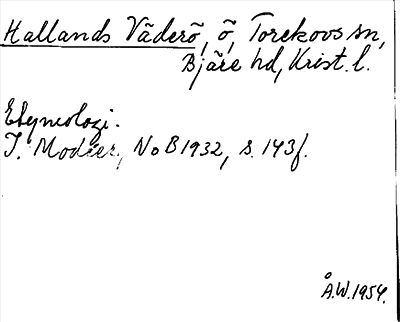 Hallands Väderö, ö, Torekovs sn,
Bjäre hd, Krist. l.
Etymologi.
I. Modéer, NoB 1932, s. 143f.
Å.W. 1954.